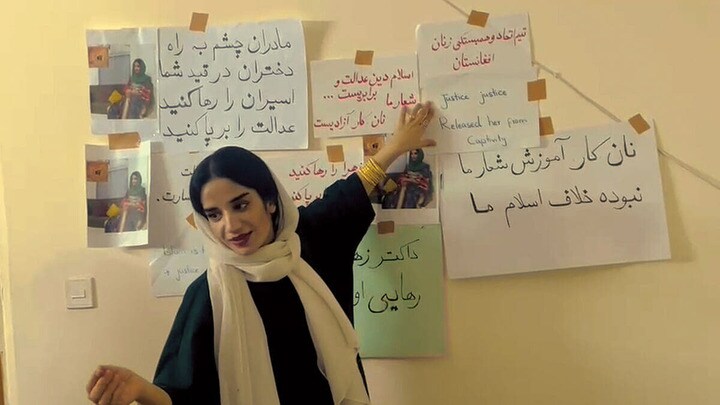 مادران چشم به راه
دختران در قید شما
اسیران را رها کنید
عدالت را بر پا کنید
اسلام دین عدالت و
برابریست ...
شعار ما
نان کار آزادیست
تیم اتحاد و همبستگی زنان
افغانستان
Justice justice
Released her from
Captivity
نان کار آموزش شعار ما
نبوده خلاف اسلام ما
را رها کنید
داکتر
رهایی